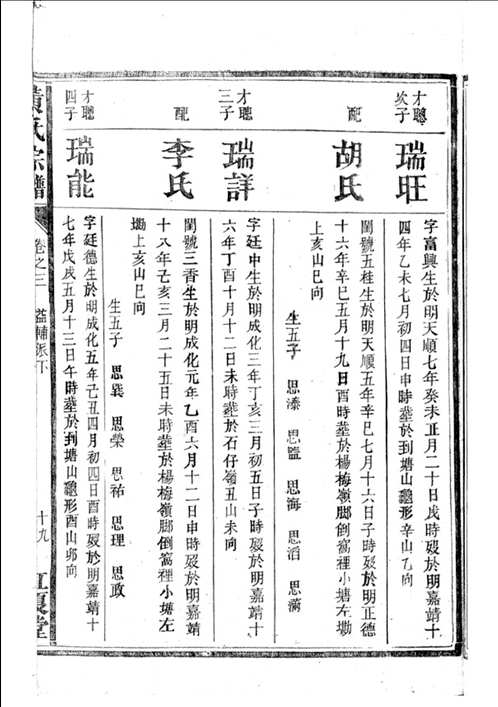 才聰次子
瑞旺
字富興生於明天順七年癸未正月二十日戌時歿於明嘉靖十
四年乙未七月初四日申時塟於到塘山龜形辛山乙向
配
胡氏
閨號五桂生於明天順五年辛巳七月十六日子時歿於明正德
十六年辛巳五月十九日酉時塟於楊梅嶺脚倒窩裡小塘左塅
上亥山巳向
生五子 思溱 思鹽 思海 思滔 思滿
才聰三子
瑞詳
字廷中生於明成化三年丁亥三月初五日子時歿於明嘉靖十
六年丁酉十月十二日未時塟於石仔嶺丑山未向
配
李氏
閨號三香生於明成化元年乙酉六月十二日申時歿於明嘉靖
十八年己亥三月二十五日未時塟於楊梅嶺脚倒窩裡小塘左
塅上亥山巳向
生五子 思巽 思榮 思祐 思理 思政
才聰四子
瑞能
字廷德生於明成化五年己丑四月初四日酉時歿於明嘉靖十
七年戊戌五月十三日午時塟於到塘山龜形酉山卯向
黃氏宗譜
卷之三 益輔派下
十九
江夏堂